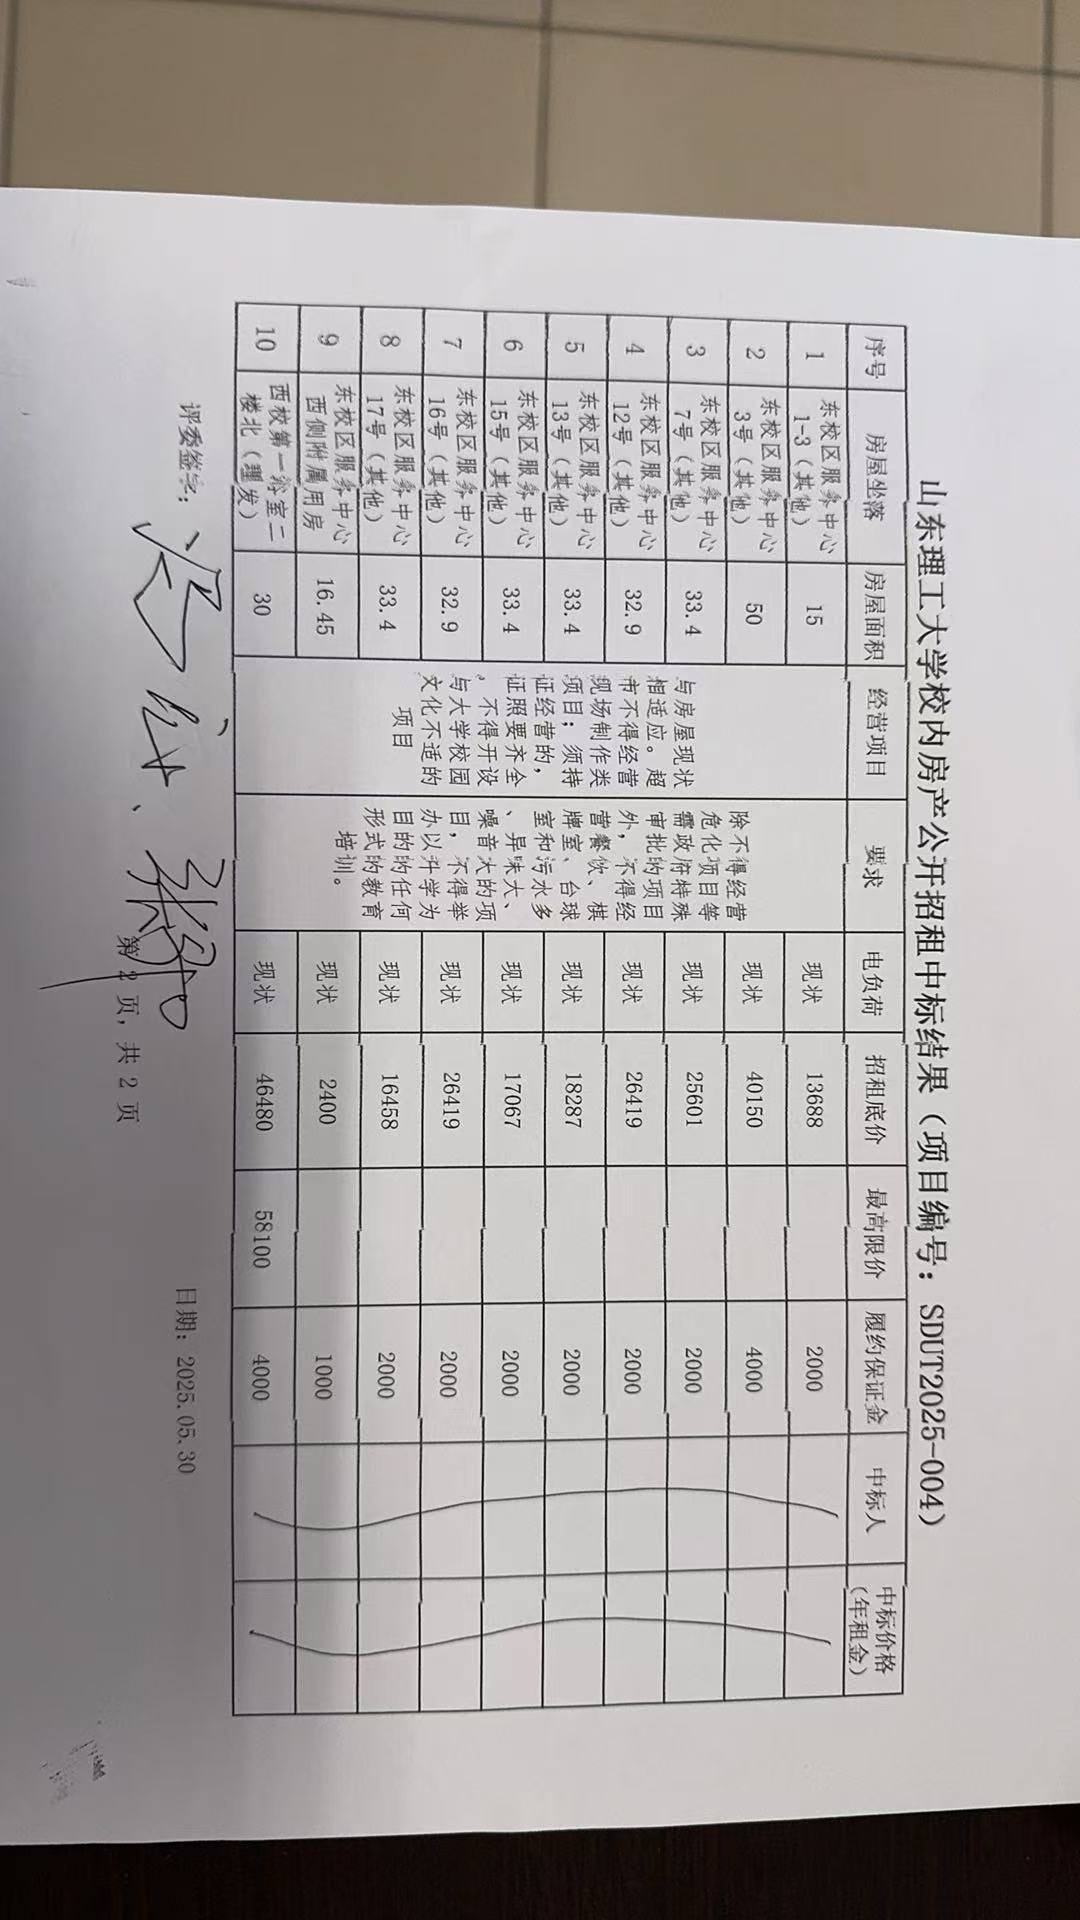 山东理工大学校内房产公开招租中标结果（项目编号：SDUT2025-004）
序号 房屋坐落 房屋面积 经营项目 要求 电负荷 招租底价 最高限价 履约保证金 中标人 中标价格（年租金）
1 东校区服务中心1-3（其他） 15 现状 13688 2000
2 东校区服务中心3号（其他） 50 现状 40150 4000
3 东校区服务中心7号（其他） 33.4 现状 25601 2000
4 东校区服务中心12号（其他） 32.9 现状 26419 2000
5 东校区服务中心13号（其他） 33.4 现状 18287 2000
6 东校区服务中心15号（其他） 33.4 现状 17067 2000
7 东校区服务中心16号（其他） 32.9 现状 26419 2000
8 东校区服务中心17号（其他） 33.4 现状 16458 2000
9 东校区服务中心西侧附属用房 16.45 现状 2400 1000
10 西校第一浴室二楼北（理发） 30 现状 46480 58100 4000
与房屋现状
相适应。超
市不得经营
现场制作类
项目；须持
证经营的，
证照要齐全
。不得开设
与大学校园
文化不适的
项目
除不得经营
危化项目等
需政府特殊
审批的项目
外，不得经
营餐饮、棋
牌室、台球
室和污水多
、异味大、
噪音大的项
目，不得举
办以升学为
目的的任何
形式的教育
培训。
评委签字：
日期：2025.05.30
第 2 页，共 2 页